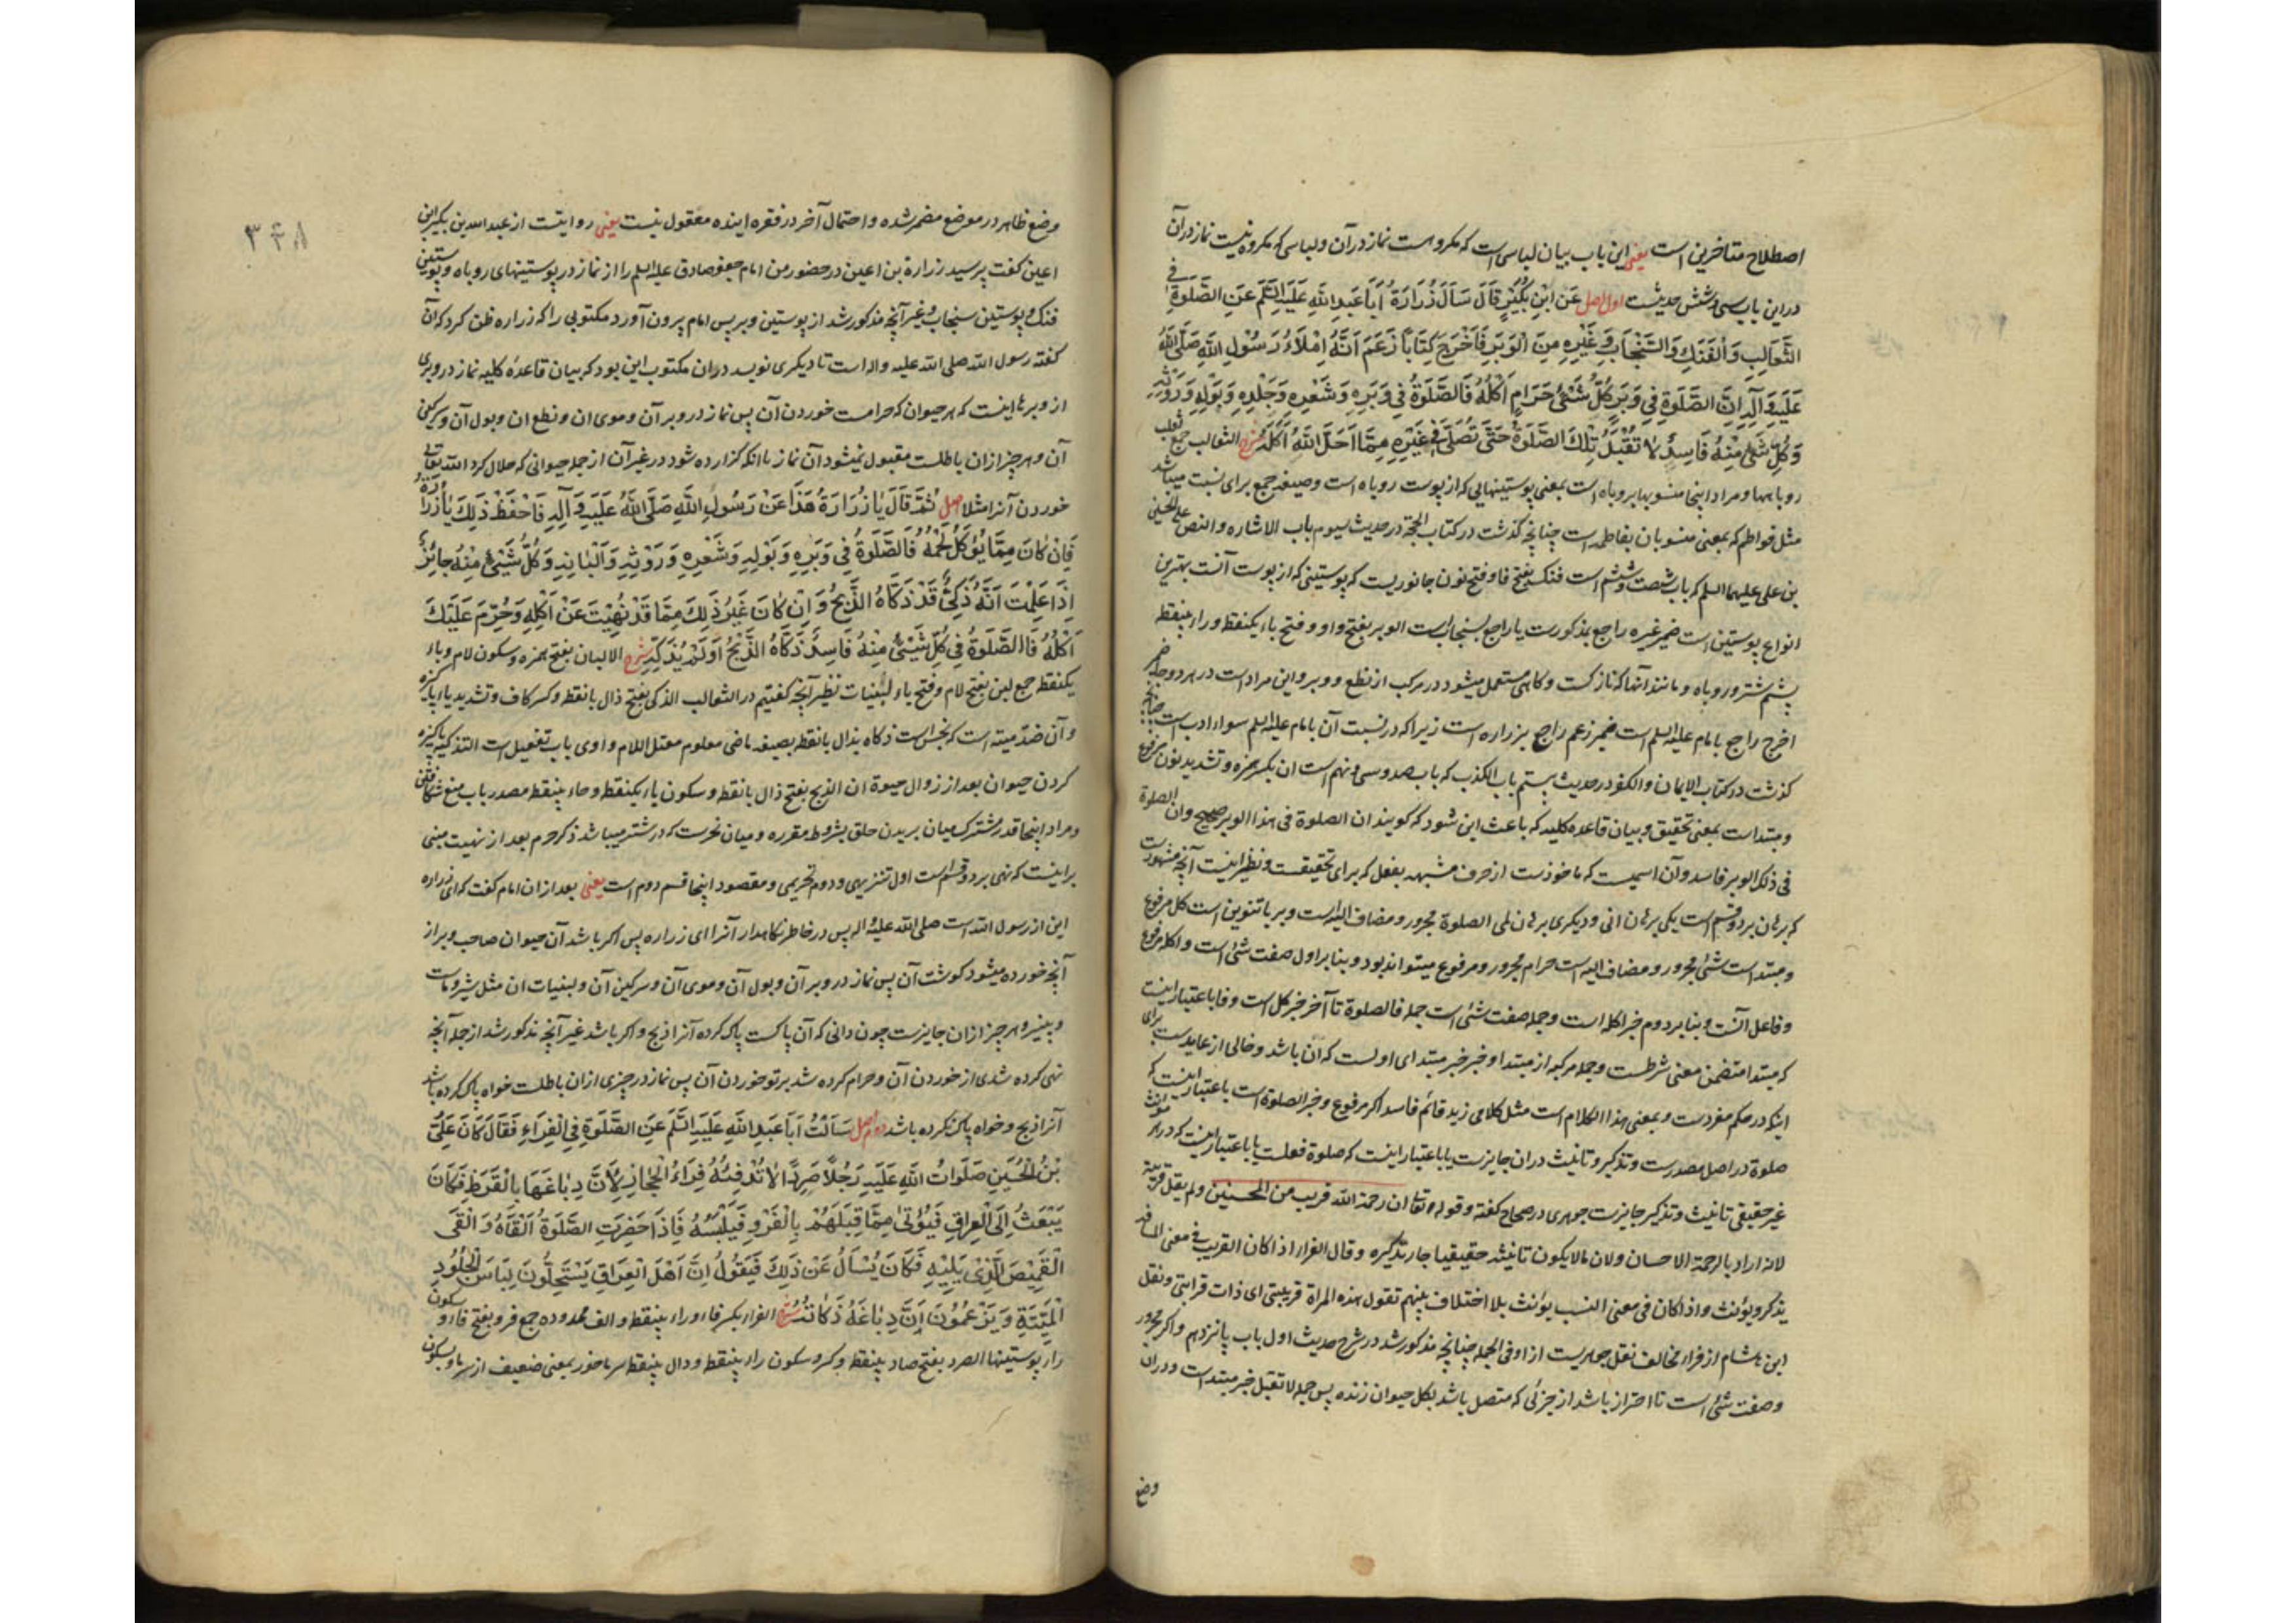 اصطلاح متاخرین است یعنی این باب بیان لباسی است که مکروهست نماز در آن و لباسی که مکروه نیست نماز در آن
در این باب سی و شش حدیثست اول اصل عَن ابْنِ بُکَیْرٍ قَالَ سَأَلَ زُرَارَةُ أَبَا عَبدِ اللَّهِ عَلَیهِ السَّلَم عَنِ الصَّلوةِ فی
الثَّعَالِبِ وَالْفَنَكِ وَالسِّنْجَابِ وَغَیْرِهِ مِنَ الْوَبَرِ فَاَخْرَجَ کِتَاباً زَعَمَ اَنَّهُ اِمْلَاءُ رَسُوْلِ اللَّهِ صَلَّی اللَّهُ
عَلَیهِ وَآلِهِ اِنَّ الصَّلَوةَ فِی وَبَرِ کُلِّ شَیْءٍ حَرَامٍ اَکْلُهُ فَالصَّلَوةُ فِی وَبَرِهِ وَشَعْرِهِ وَجِلْدِهِ وَبَوْلِهِ وَرَوْثِهِ
وَکُلِّ شَیْءٍ مِنْهُ فَاسِدٌ لَا تُقْبَلُ تِلْكَ الصَّلَوةُ حَتّی تُصَلّی فِی غَیْرِهِ مِمَّا اَحَلَّ اللَّهُ اَکْلَهُ شرح الثعالب جمع ثعلب
روباهها و مراد اینجا منسوبها بروباه است بمعنی پوستینهایی که از پوست روباه است و صیغه جمع برای نسبت میباشد
مثل فواطم که بمعنی منسوبان بفاطمه است چنانچه گذشت در کتاب الحجة در حدیث سیوم باب الاشاره والنص علی الحسین
بن علی علیهما السلم که باب شصت و ششم است فنك بفتح فا و فتح نون جانوریست که پوستینی که از پوست آنست بهترین
انواع پوستین است ضمیر غیره راجع بمذکورست یا راجع بسنجاب است الوبر بفتح واو و فتح باء یکنقطه و راء بینقطه
پشم شتر و روباه و مانند آنها که نازکست و گاهی مستعمل میشود در مرکب از نطع و وبر و این مراد است در هر دو جا ضمیر
اخرج راجع بامام علیه السلم است ضمیر زعم راجع بزراره است زیرا که در نسبت آن بامام علیه السلم سوء ادب است چنانچه
گذشت در کتاب الایمان والکفر در حدیث بیستم باب الکذب که باب صد و سی و نهم است ان بکسر همزه و تشدید نون مرفوع
و مبتداست بمعنی تحقیق و بیان قاعده کلیه که باعث این شود که گویند ان الصلوة فی هذا الوبر صحیح وان الصلوة
فی ذلك الوبر فاسد و آن اسمیست که ماخوذست از حرف مشبهه بفعل که برای تحقیقست و نظیر اینست آنچه مشهورست
که برهان بر دو قسم است یکی برهان انی و دیگری برهان لمی الصلوة مجرور و مضاف الیه است وبر با تنوین است کل مرفوع
و مبتداست شیء مجرور و مضاف الیه است حرام مجرور و مرفوع میتواند بود و بنابر اول صفت شیء است و اکله مرفوع
و فاعل آنست و بنابر دوم خبر اکله است و جمله صفت شیء است جمله فالصلوة تا آخر خبر کل است و فا باعتبار اینست
که مبتدا متضمن معنی شرطست و جمله مرکبه از مبتدا و خبر خبر مبتدای اولست که ان باشد و خالی از عایدست برای
اینکه در حکم مفردست و بمعنی هذا الکلام است مثل کلامی زید قائم فاسد اگر مرفوع و خبر الصلوة است باعتبار اینست که
صلوة در اصل مصدرست و تذکیر و تانیث دران جایزست یا باعتبار اینست که صلوة فعلست یا باعتبار اینست که در هر مؤنث
غیر حقیقی تانیث و تذکیر جایزست جوهری در صحاح گفته و قوله تعا ان رحمة الله قریب من المحسنین ولم یقل قریبة
لانه اراد بالرحمة الاحسان ولان مالا یکون تانیثه حقیقیا جاز تذکیره وقال الفراء اذا کان القریب فی معنی المسافة
یذکر ویؤنث واذا کان فی معنی النسب یؤنث بلا اختلاف بینهم تقول هذه المراة قریبتی ای ذات قرابتی و نقل
ابن هشام از فراء مخالف نقل جوهریست از او فی الجمله چنانچه مذکور شد در شرح حدیث اول باب پانزدهم و اگر مجرور
و صفت شیء است تا احتراز باشد از جزئی که متصل باشد بکل حیوان زنده پس جمله لا تقبل خبر مبتداست و دران
وضع
۳۴۸
وضع ظاهر در موضع مضمر شده و احتمال آخر در فقره اینده معقول نیست یعنی روایتست از عبدالله بن بکیر بن
اعین گفت پرسید زرارة بن اعین در حضور من امام جعفر صادق علیه السلم را از نماز در پوستینهای روباه و پوستین
فنك و پوستین سنجاب و غیر آنچه مذکور شد از پوستین وبر پس امام بیرون آورد مکتوبی را که زراره ظن کرد که آن
گفته رسول الله صلی الله علیه واله است تا دیگری نویسد دران مکتوب این بود که بیان قاعدهٔ کلیه نماز در وبری
از وبرها اینست که هر حیوان که حرامست خوردن آن پس نماز در وبر آن و موی ان و نطع ان و بول آن و سرکین
آن و هر چیز ازان باطلست مقبول نمیشود آن نماز تا آنکه گزارده شود در غیر آن از جمله حیوانی که حلال کرد الله تعالی
خوردن آنرا مثلا اصل ثُمَّ قَالَ یَا زُرَارَةُ هَذَا عَنْ رَسُوْلِ اللَّهِ صَلَّی اللَّهُ عَلَیهِ وَآلِهِ فَاحْفَظْ ذَلِكَ یَا زُرَارَةُ
فَاِنْ کَانَ مِمَّا یُؤْکَلُ لَحْمُهُ فَالصَّلَوةُ فِی وَبَرِهِ وَبَوْلِهِ وَشَعْرِهِ وَرَوْثِهِ وَاَلْبَانِهِ وَکُلُّ شَیْءٍ مِنْهُ جائِزٌ
اِذَا عَلِمْتَ اَنَّهُ ذَکِیٌّ قَدْ ذَکَّاهُ الذَّبْحُ وَاِنْ کَانَ غَیْرَ ذَلِكَ مِمَّا قَدْ نُهِیْتَ عَنْ اَکْلِهِ وَحُرِّمَ عَلَیْكَ
اَکْلُهُ فَالصَّلَوةُ فِی کُلِّ شَیْءٍ مِنْهُ فَاسِدٌ ذَکَّاهُ الذَّبْحُ اَوْ لَمْ یُذَکِّهِ شرح الالبان بفتح همزه و سکون لام و باء
یکنقطه جمع لبن بفتح لام و فتح باء لبنیات نظیر آنچه گفتیم در الثعالب الذکی بفتح ذال بانقطه و کسر کاف و تشدید یاء پاکیزه
و آن ضد میته است که نجس است ذکاه بذال بانقطه بصیغه ماضی معلوم معتل اللام واوی باب تفعیل است التذکیة پاکیزه
کردن حیوان بعد از زوال حیوة ان الذبح بفتح ذال بانقطه و سکون باء یکنقطه و حاء بینقطه مصدر باب منع شکافتن
و مراد اینجا قدر مشترک میان بریدن حلق بشروط مقرره و میان نحرست که در شتر میباشد ذکر حرم بعد از نهیت مبنی
بر اینست که نهی بر دو قسم است اول تنزیهی و دوم تحریمی و مقصود اینجا قسم دوم است یعنی بعد ازان امام گفت که ای زراره
این از رسول الله است صلی الله علیه واله پس در خاطر نگاهدار آنرا ای زراره پس اگر باشد آن حیوان صاحب وبر از
آنچه خورده میشود گوشت آن پس نماز در وبر آن و بول آن و موی آن و سرکین آن و لبنیات ان مثل شیر و ماست
و پنیر و هر چیز ازان جایزست چون دانی که آن پاکست پاک کرده آنرا ذبح و اگر باشد غیر آنچه مذکور شد از جمله آنچه
نهی کرده شدی از خوردن آن و حرام کرده شد بر تو خوردن آن پس نماز در چیزی ازان باطلست خواه پاک کرده باشد
آنرا ذبح و خواه پاک نکرده باشد دوم اصل سَاَلْتُ اَبَا عَبدِ اللَّهِ عَلَیهِ السَّلَم عَنِ الصَّلَوةِ فِی الْفِرَاءِ فَقَالَ کَانَ عَلِیُّ
بْنُ الْحُسَیْنِ صَلَوَاتُ اللَّهِ عَلَیهِ رَجُلًا صَرِداً لَا تُدْفِئُهُ فِرَاءُ الْحِجَازِ لِاَنَّ دِبَاغَهَا بِالْقَرَظِ فَکَانَ
یَبْعَثُ اِلَی الْعِرَاقِ فَیُؤْتَی مِمَّا قِبَلَهُمْ بِالْفَرْوِ فَیَلْبَسُهُ فَاِذَا حَضَرَتِ الصَّلَوةُ اَلْقَاهُ وَاَلْقَی
الْقَمِیْصَ الَّذِی یَلِیْهِ فَکَانَ یُسْاَلُ عَنْ ذَلِكَ فَیَقُوْلُ اِنَّ اَهْلَ الْعِرَاقِ یَسْتَحِلُّونَ لِبَاسَ الْجُلُودِ
الْمَیْتَةِ وَیَزْعُمُوْنَ اِنَّ دِبَاغَهُ ذَکَاتُهُ شرح الفراء بکسر فاء و راء بینقطه و الف ممدوده جمع فرو بفتح فاء و سکون
راء پوستینها الصرد بفتح صاد بینقطه و کسر و سکون راء بینقطه و دال بینقطه سرماخور بمعنی ضعیف از سرما و بسکون